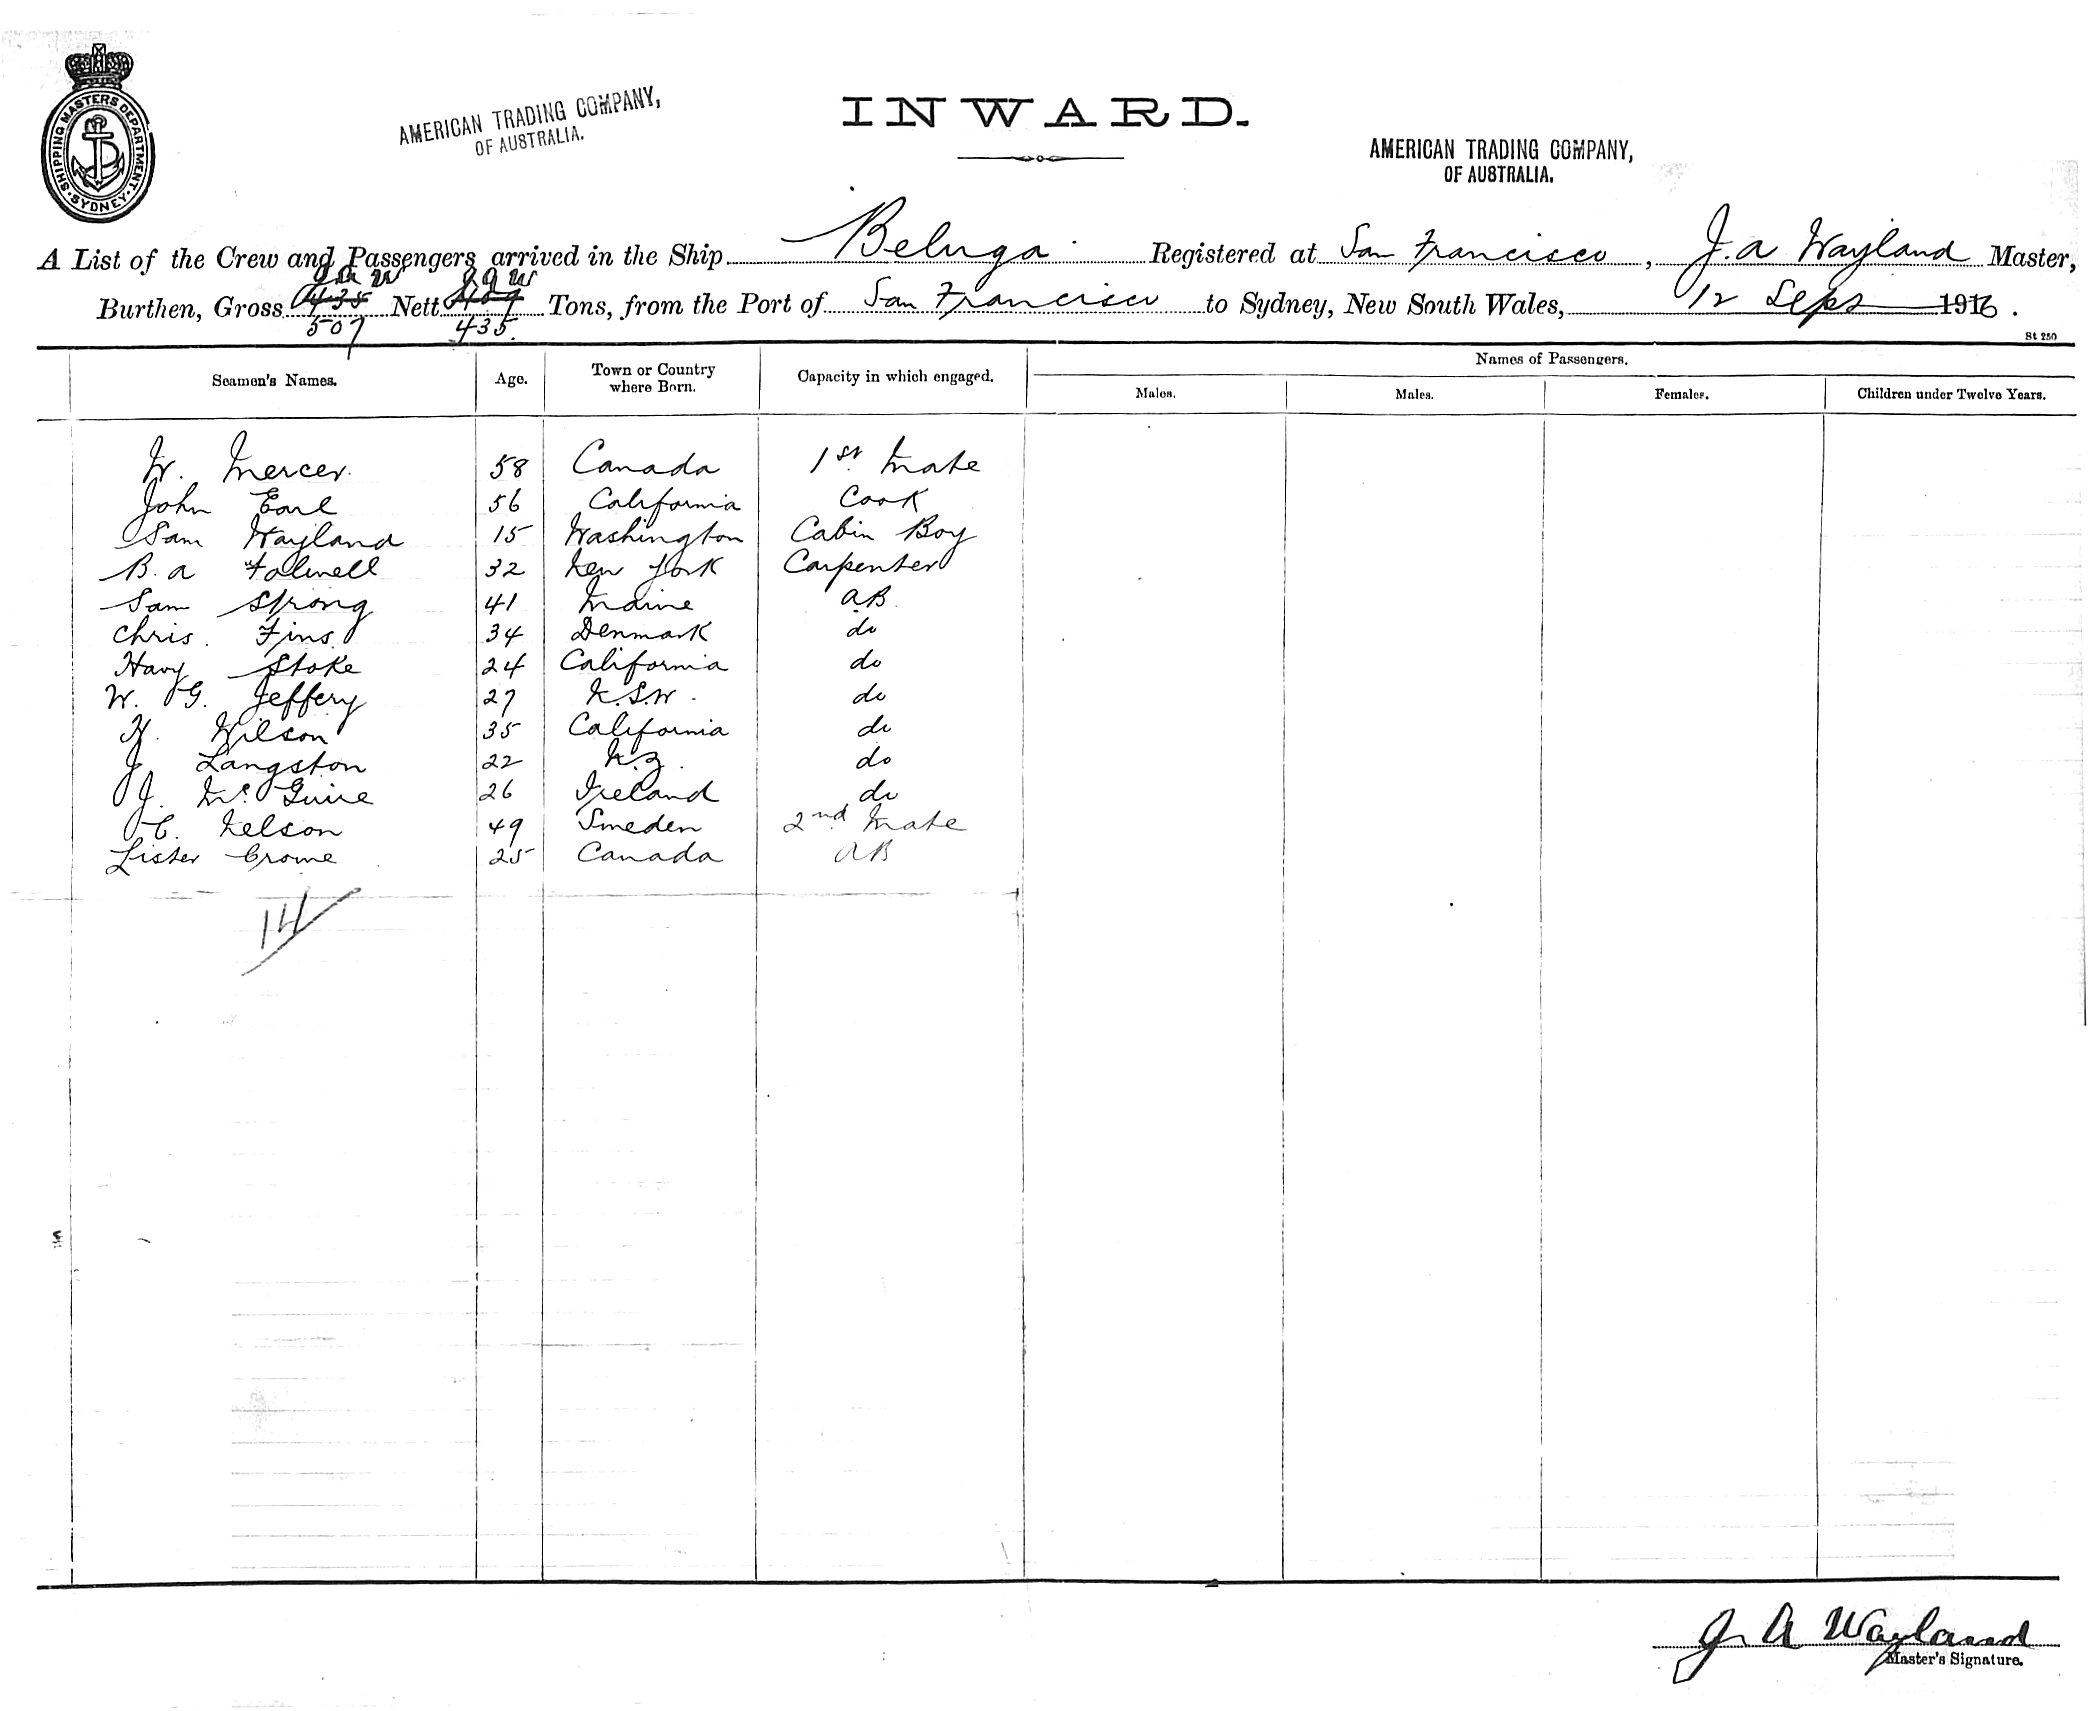 SHIPPING MASTERS DEPARTMENT. SYDNEY
AMERICAN TRADING COMPANY,
OF AUSTRALIA.
INWARD.
AMERICAN TRADING COMPANY,
OF AUSTRALIA.
A List of the Crew and Passengers arrived in the Ship Beluga. Registered at San Francisco, J. a Wayland Master,
J a W J a W
Burthen, Gross 435 Nett 409 Tons, from the Port of San Francisco to Sydney, New South Wales, 12 Sept 1916.
507 435.
St 250
Seamen's Names. Age. Town or Country where Born. Capacity in which engaged. Names of Passengers.
Males. Males. Females. Children under Twelve Years.
W. Mercer. 58 Canada 1st Mate
John Earl 56 California Cook
Sam Wayland 15 Washington Cabin Boy
B. a 32 New York Carpenter
Sam Strong 41 Maine a.B.
Chris. Fins 34 Denmark do
Stoke 24 California do
W. G. Jeffery 27 N.S.W. do
H. Wilson 35 California do
J Langston 22 N.Z. do
J. Mc Guire 26 Ireland do
C. Nelson 49 Sweden 2nd Mate
Lister Crowe 25 Canada aB
14
J A Wayland
Master's Signature.